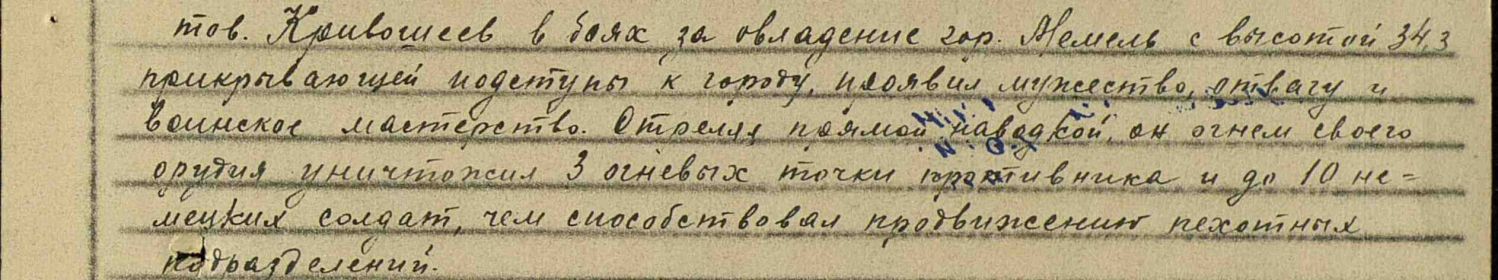 тов. Кривошеев в боях за овладение гор. Мемель с высотой 34,3
прикрывающей подступы к городу, проявил мужество, отвагу и
воинское мастерство. Стреляя прямой наводкой, он огнем своего
орудия уничтожил 3 огневых точки противника и до 10 не=
мецких солдат, чем способствовал продвижению пехотных
подразделений.